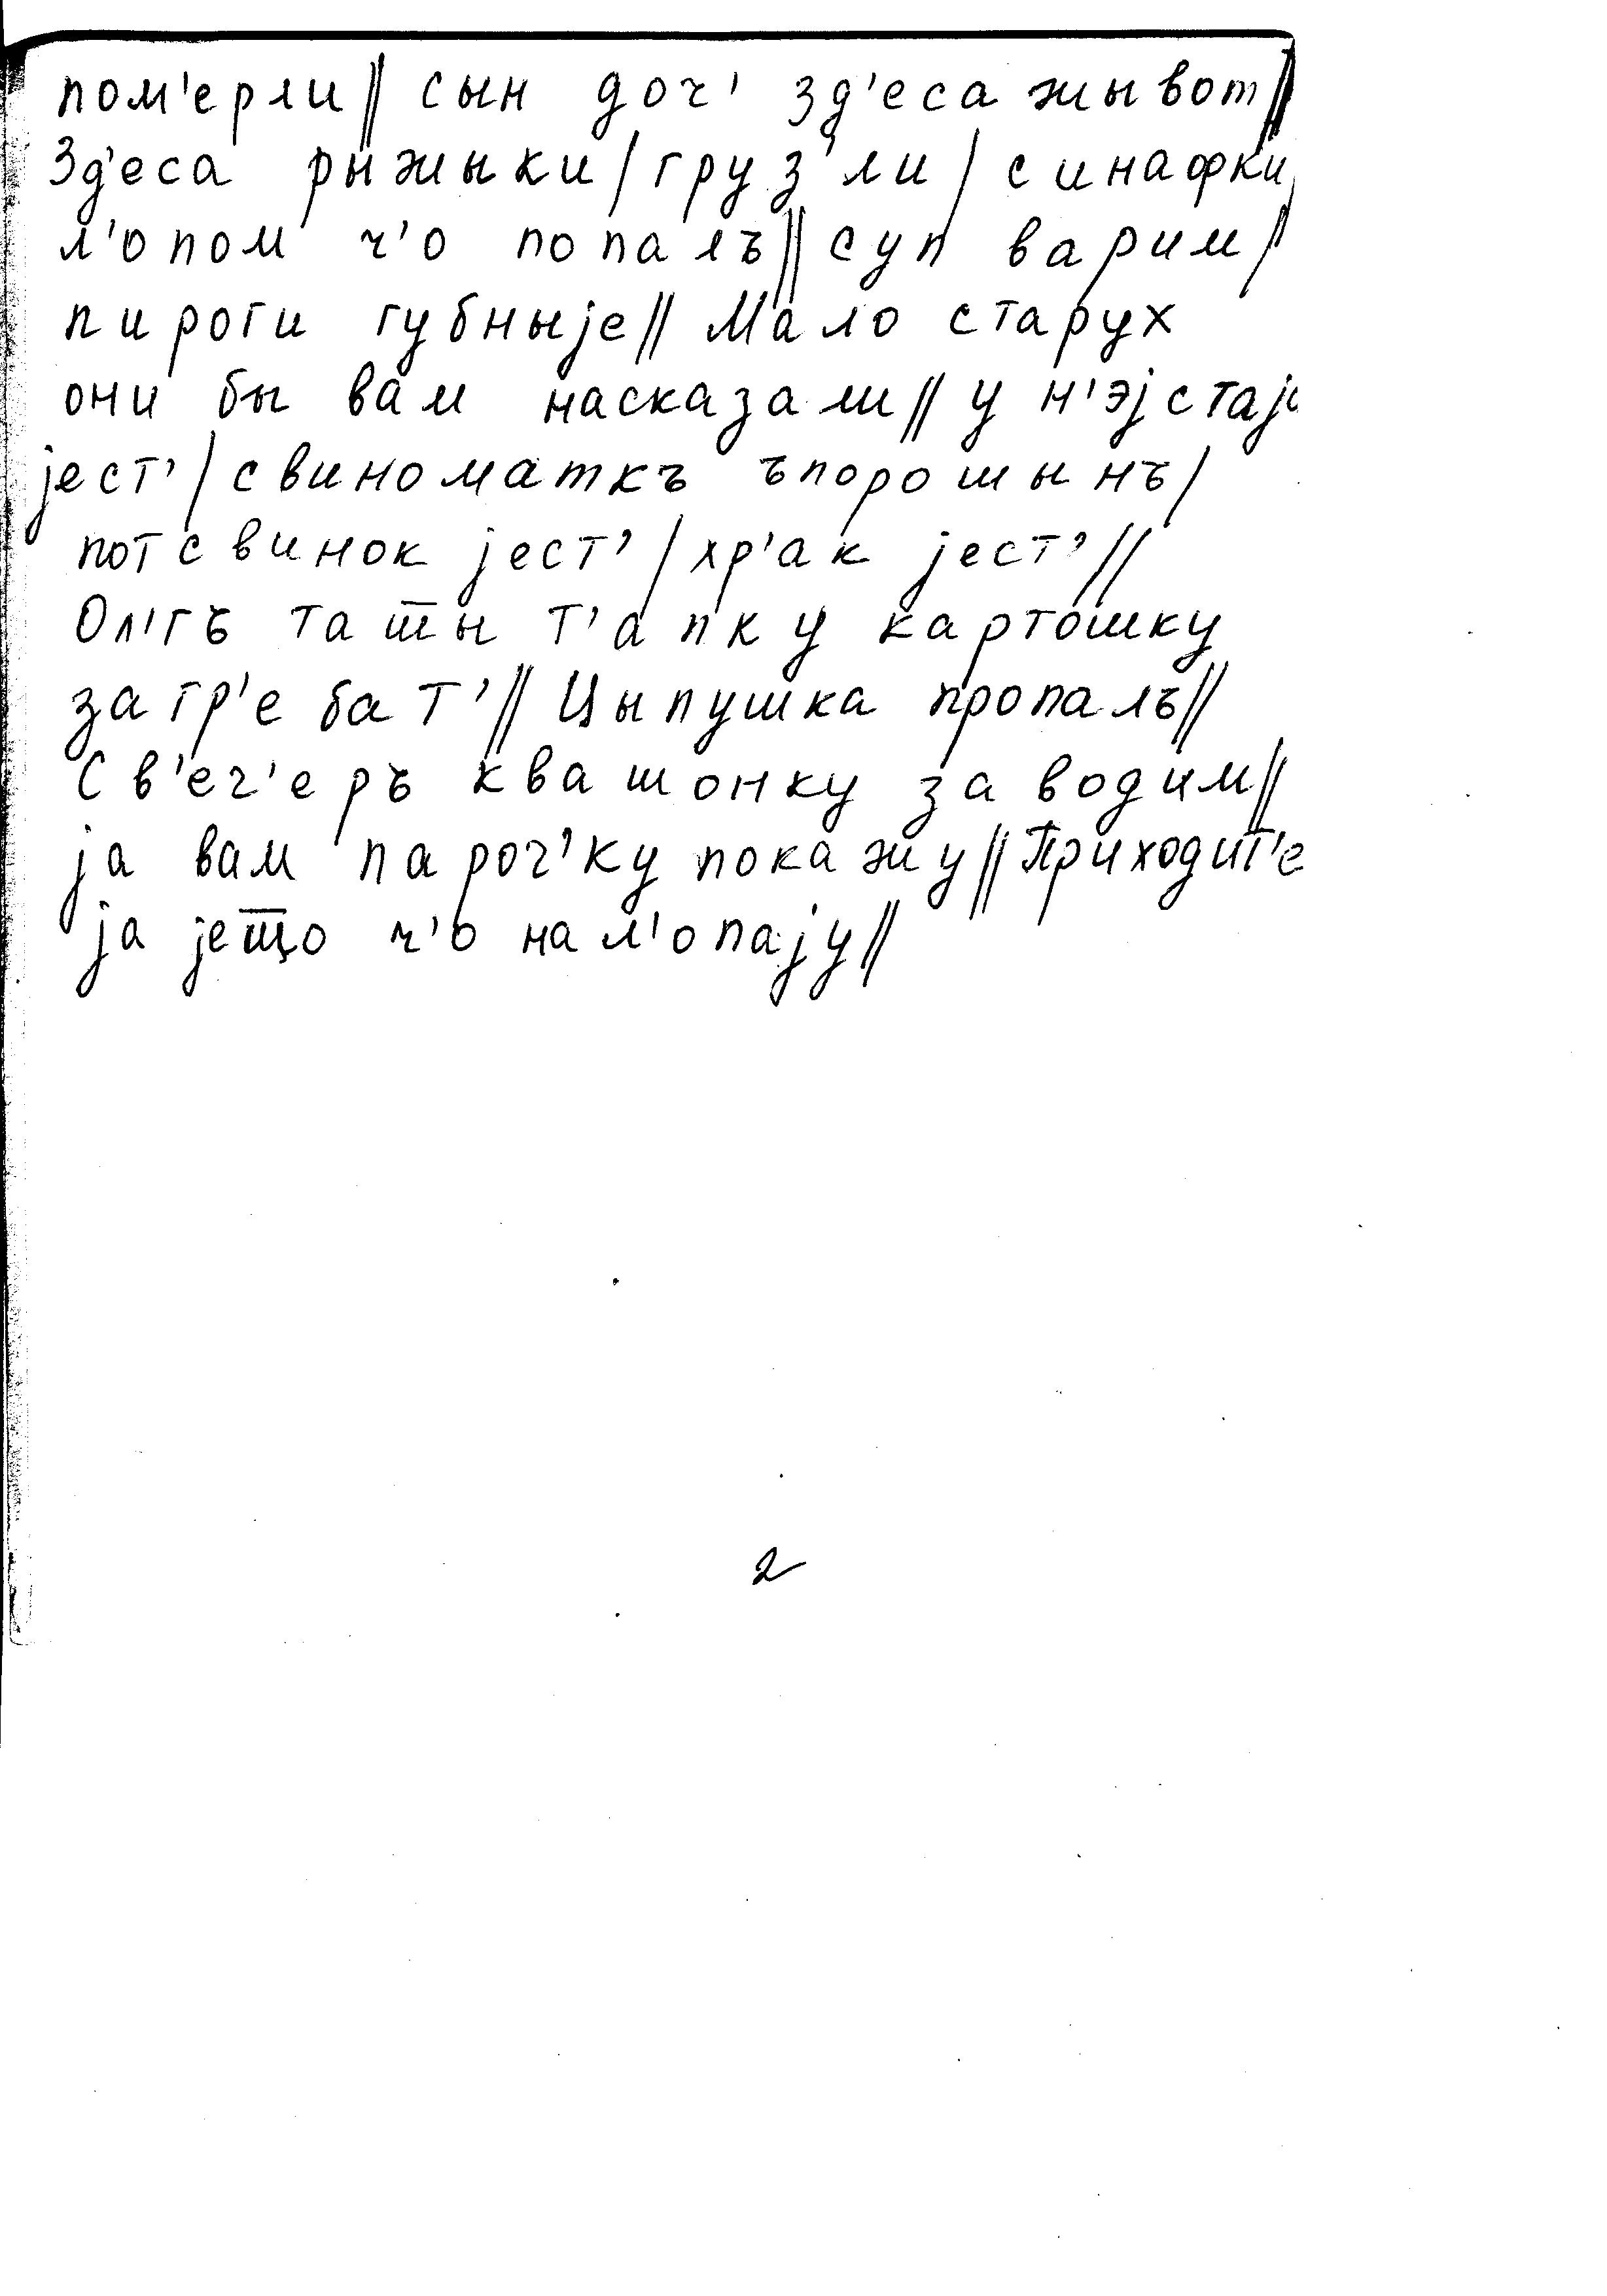 пом'ерли// сын доч' зд'еса жывот//
Зд'еса рыжыки/ груз'ли/ синафки/
л'опом ч'о попалъ// суп варим/
пироги губныjе// Мало старух
они бы вам насказали// у н'эj стаjе
jест'/ свиноматкъ ъпорошынъ/
потсвинок jест'/ хр'ак jест'//
Ол'гъ таты т'апку картошку
загр'ебат'// Цыпушка пропалъ//
Св'еч'еръ квашонку заводим//
jа вам пароч'ку покажу// Приходит'е
jа jещо ч'о нал'опаjу//
2